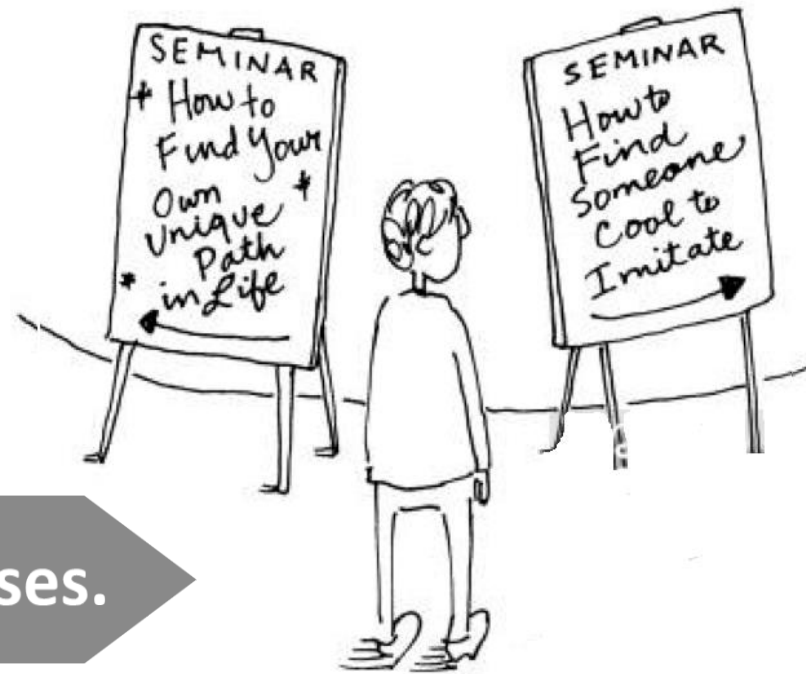 SEMINAR
How to
Find Your
Own
Unique
Path
in Life
SEMINAR
How to
Find
Someone
Cool to
Imitate
ses.